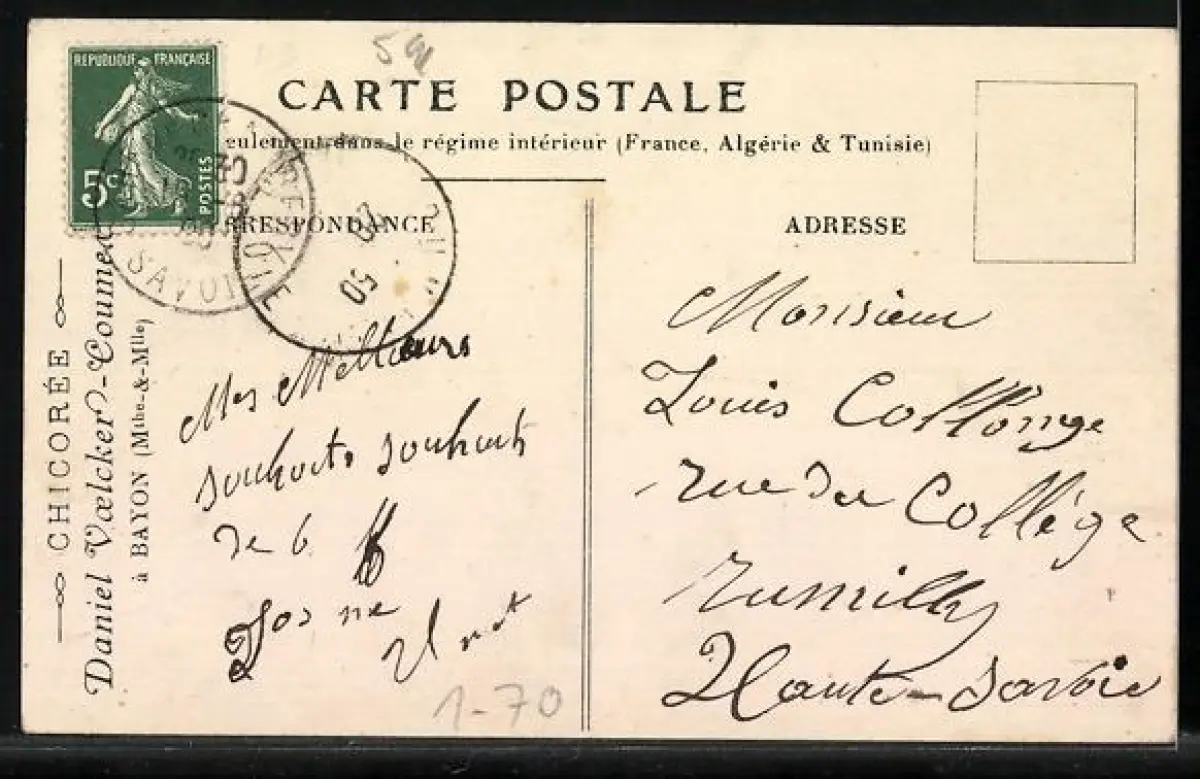 RÉPUBLIQUE FRANÇAISE
5c
POSTES
CARTE POSTALE
eulement dans le régime intérieur (France, Algérie & Tunisie)
RRESPONDANCE
ADRESSE
SAVOIE
50
CHICORÉE
Daniel Vœlcker-Coumes
à BAYON (Mthe-&-Mlle)
Mes Meilleurs
souhaits souhaits
de b
Monsieur
Louis Collonge
rue du Collége
rumilly
Haute-savoie
1-70